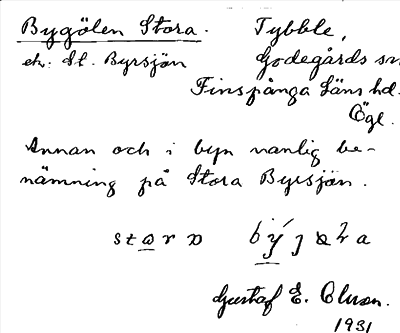 Bygölen Stora. Tybble,
ek: St. Byrsjön Godegårds sn
Finspånga läns hd.
Ögl.
Annan och i byn vanlig be-
nämning på Stora Byrsjön.
Gustaf E. Olsson.
1931